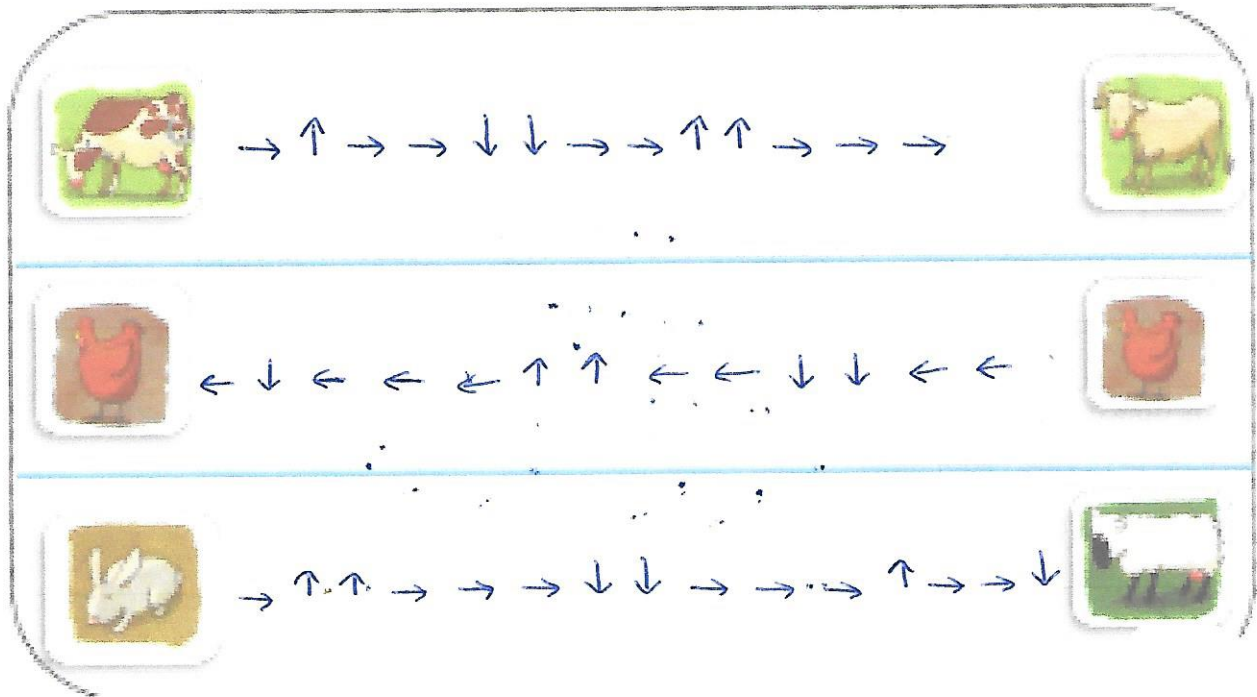 → ↑ → → ↓ ↓ → → ↑ ↑ → → →
← ↓ ← ← ← ↑ ↑ ← ← ↓ ↓ ← ←
→ ↑ ↑ → → → ↓ ↓ → → → ↑ → → ↓